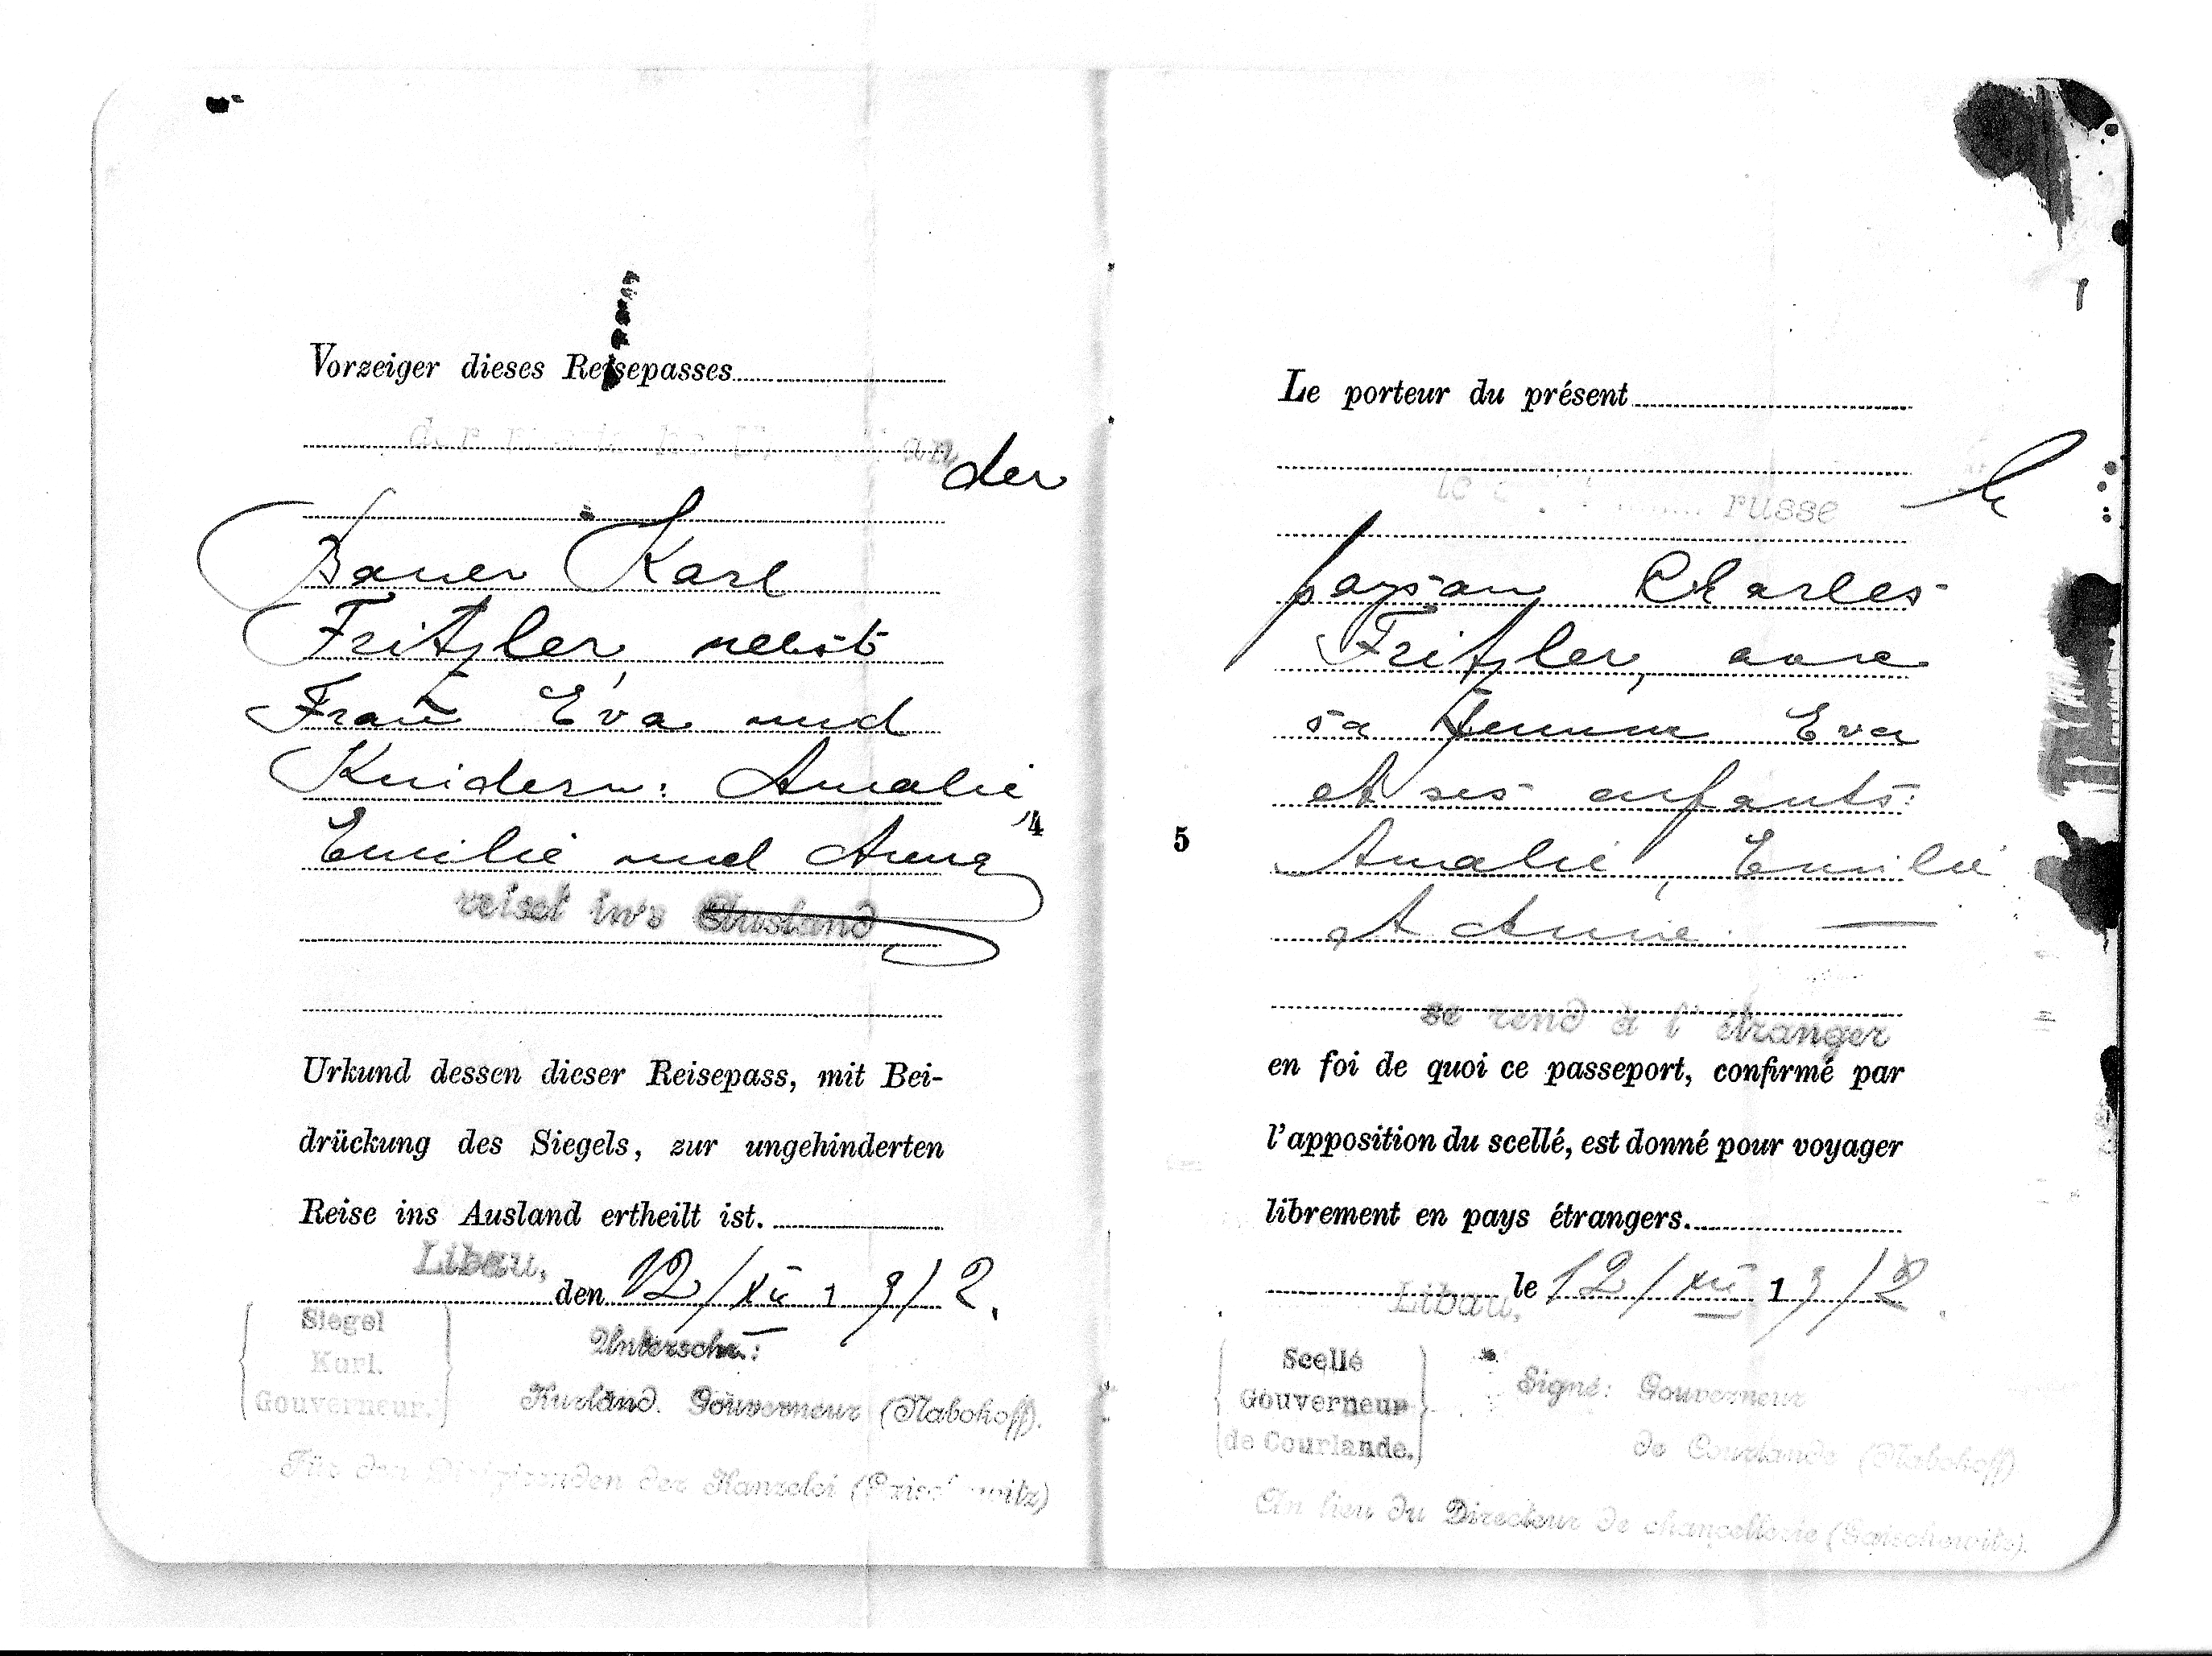 Vorzeiger dieses Reisepasses
der
Bauer Karl
Fritzler, nebst
Frau Eva und
Kindern: Amalie,
4
Emilie und Anna
reiset in's Ausland
Urkund dessen dieser Reisepass, mit Bei-
drückung des Siegels, zur ungehinderten
Reise ins Ausland ertheilt ist.
Libau, den 12/XII 1912.
Siegel
Kurl.
Gouverneur.
Unterschr.:
Kurländ. Gouverneur (Nabokoff).
Für den Dirigirenden der Kanzelei
Le porteur du présent
russe
le
paysan Charles
Fritzler, avec
sa femme Eva
et ses enfants:
5
Amalie, Emilie
et Annie.
se rend à l'étranger
en foi de quoi ce passeport, confirmé par
l'apposition du scellé, est donné pour voyager
librement en pays étrangers.
Libau, le 12/XII 1912.
Scellé
Gouverneur
de Courlande.
Signé: Gouverneur
de Courlande (Nabokoff)
En lieu du Directeur de chancellerie